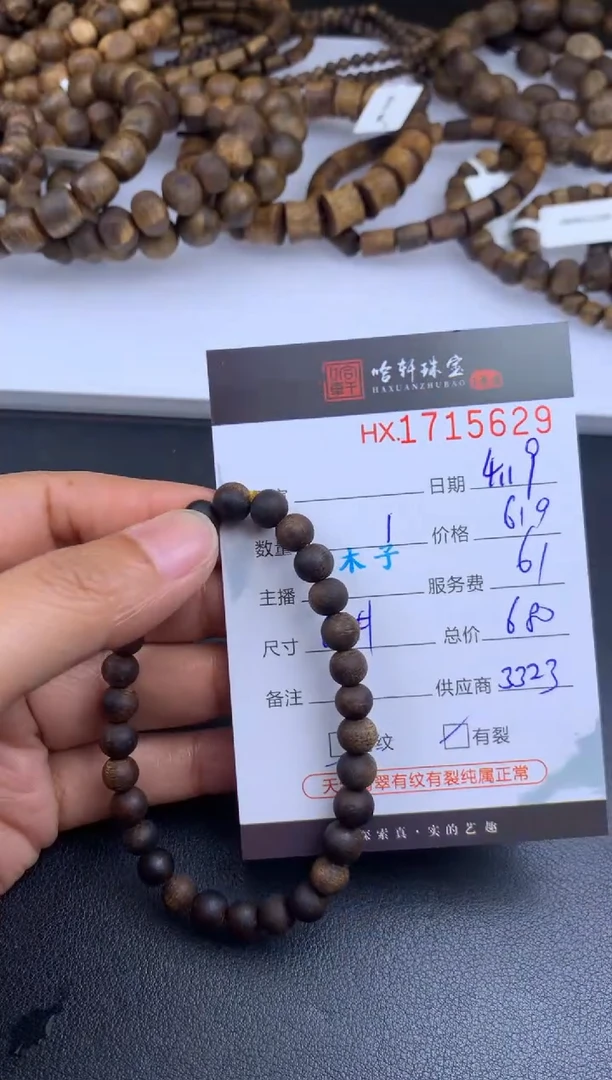 哈轩珠宝
HAXUANZHUBAO
HX.1715629
日期 4.19
数量 1 价格 619
木子
主播 服务费 61
尺寸 总价 680
备注 供应商 3323
纹 有裂
天 翠有纹有裂纯属正常
探索真·实的艺趣